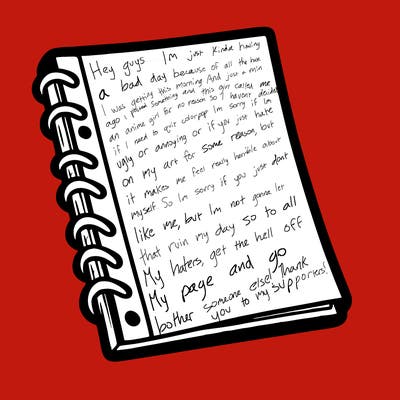 Hey guys Im just kinda having
a bad day because of all the hate
I was getting this morning And just a min
ago I posted something and this girl called me
an anime girl for no reason so I havent decided
if I need to quit colorpop Im sorry if Im
ugly or annoying or if you just hate
on my art for some reason, but
it makes me feel really horrible about
myself. So Im sorry if you just dont
like me, but Im not gonna let
that ruin my day so to all
My haters, get the hell off
My page and go
bother someone else! Thank
you to my supporters!